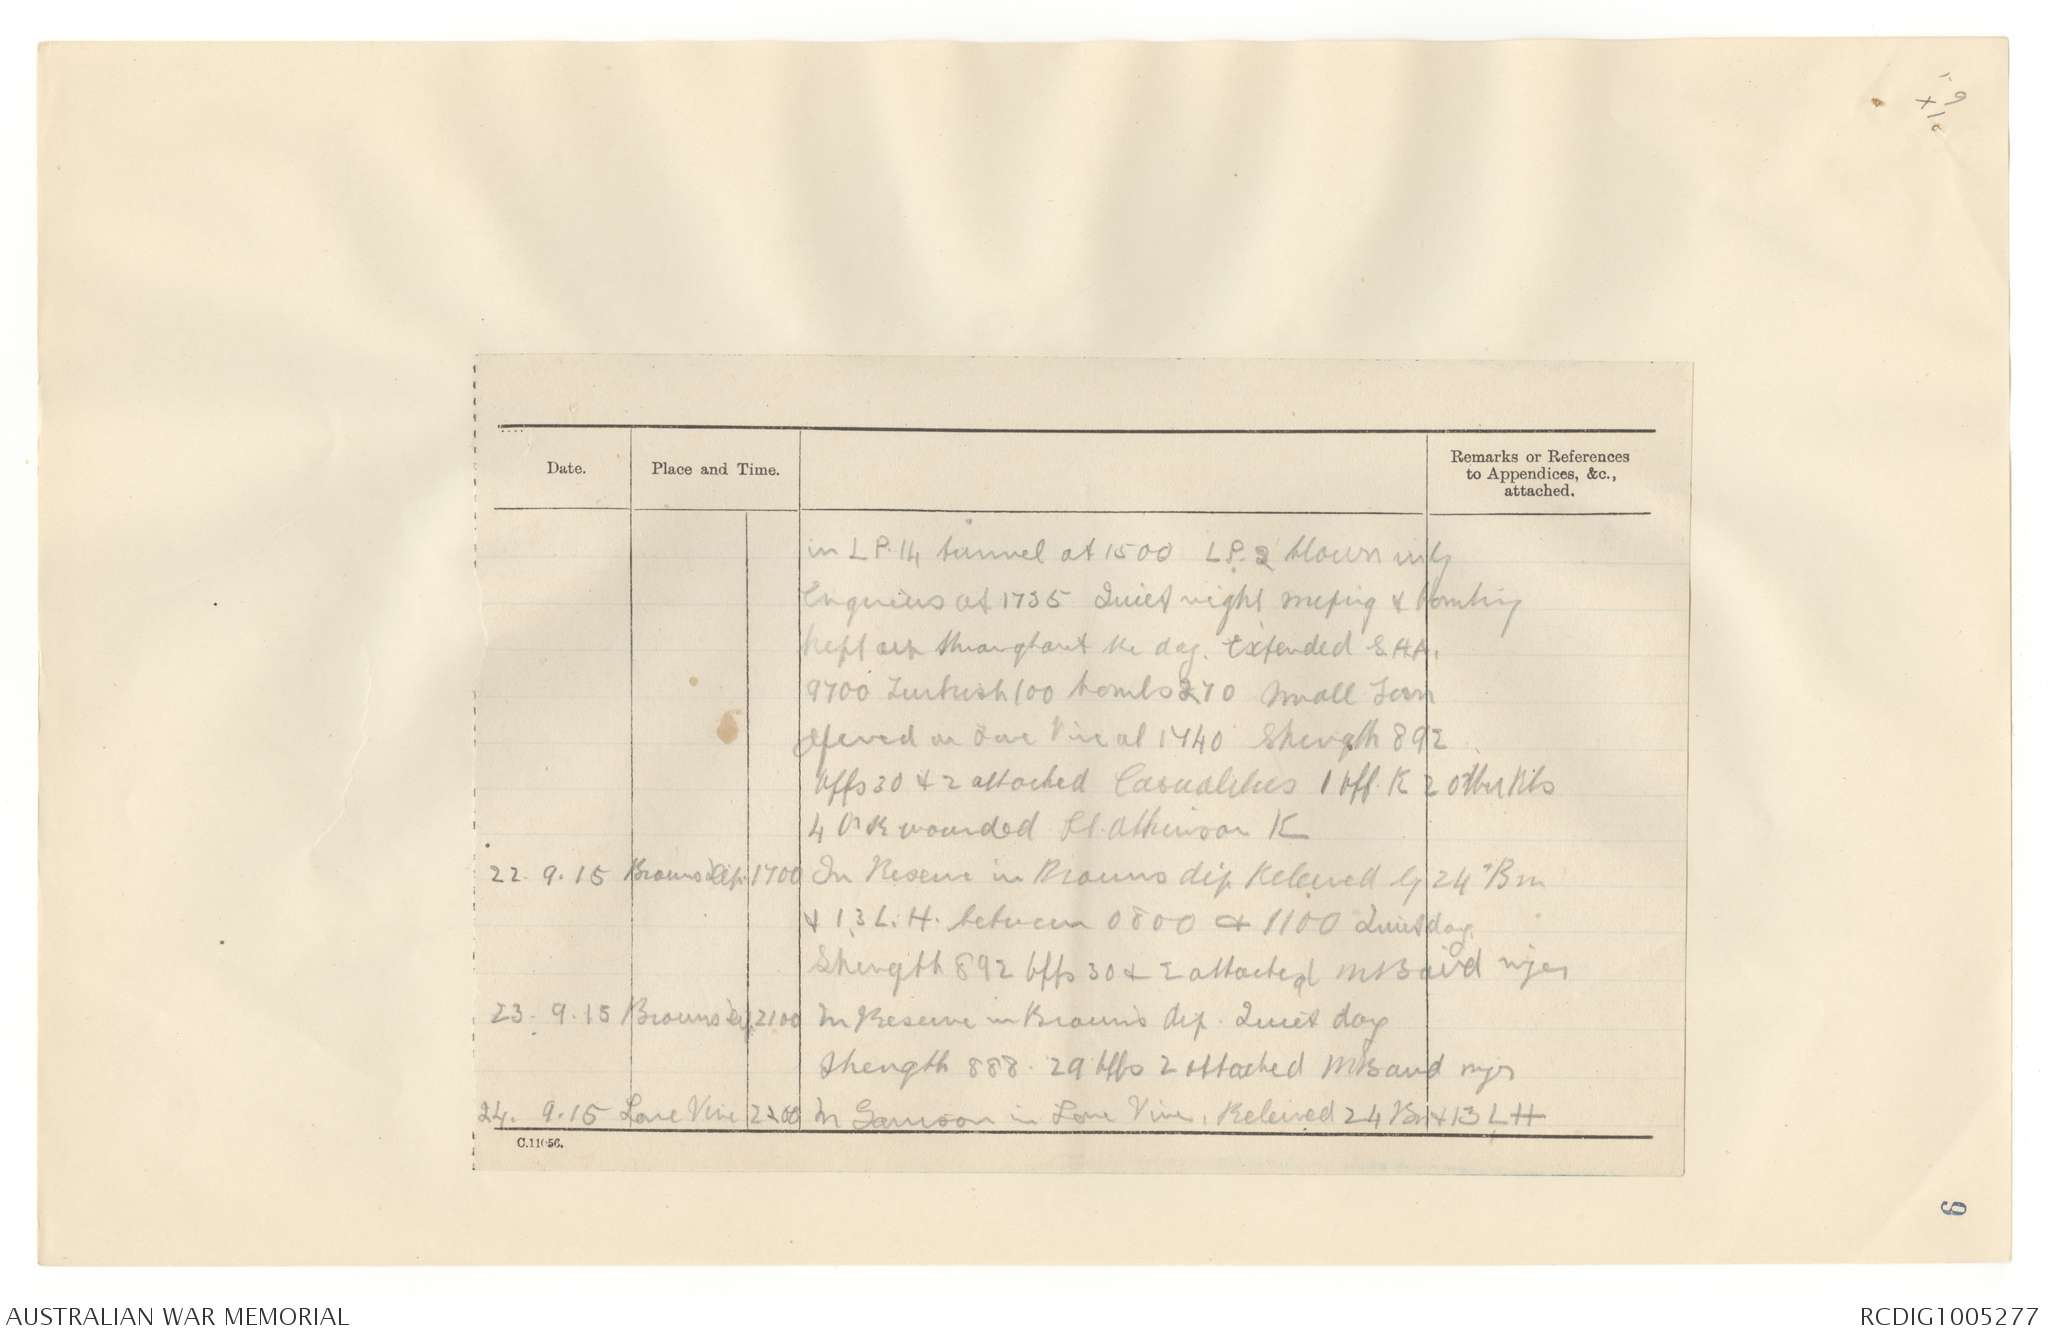 9
x
10
Date.
Place and Time.
Remarks or References
to Appendices, &c.,
attached.
in L P. 14 tunnel at 1500 L P. 2 blown in by
Engineers at 1735 Quiet night sniping & bombing
kept up throughout the day. Extended S.A.A.
9700 Turkish 100 bombs 270 Small
opened on Lone Pine at 1740 Strength 892
Offs 30 & 2 attached Casualties 1 Off. K 2 Other Rks
4 O R wounded Lt. Atkinson K
22. 9. 15 Browns Dip. 1700 In Reserve in Browns dip Releived by 24th Bn
& 13 L. H. between 0800 & 1100 Quiet day.
Strength 892 Offs 30 & 2 attached M Baird mjr
23. 9. 15 Browns Dip 2100 In Reserve in Browns dip. Quiet day
Strength 888. 29 Offs 2 attached M Baird mjr
24. 9. 15 Lone Pine 2200 In Garrison in Lone Pine, Releived 24 Bn & 13 L H
C.11056.
9
AUSTRALIAN WAR MEMORIAL
RCDIG1005277